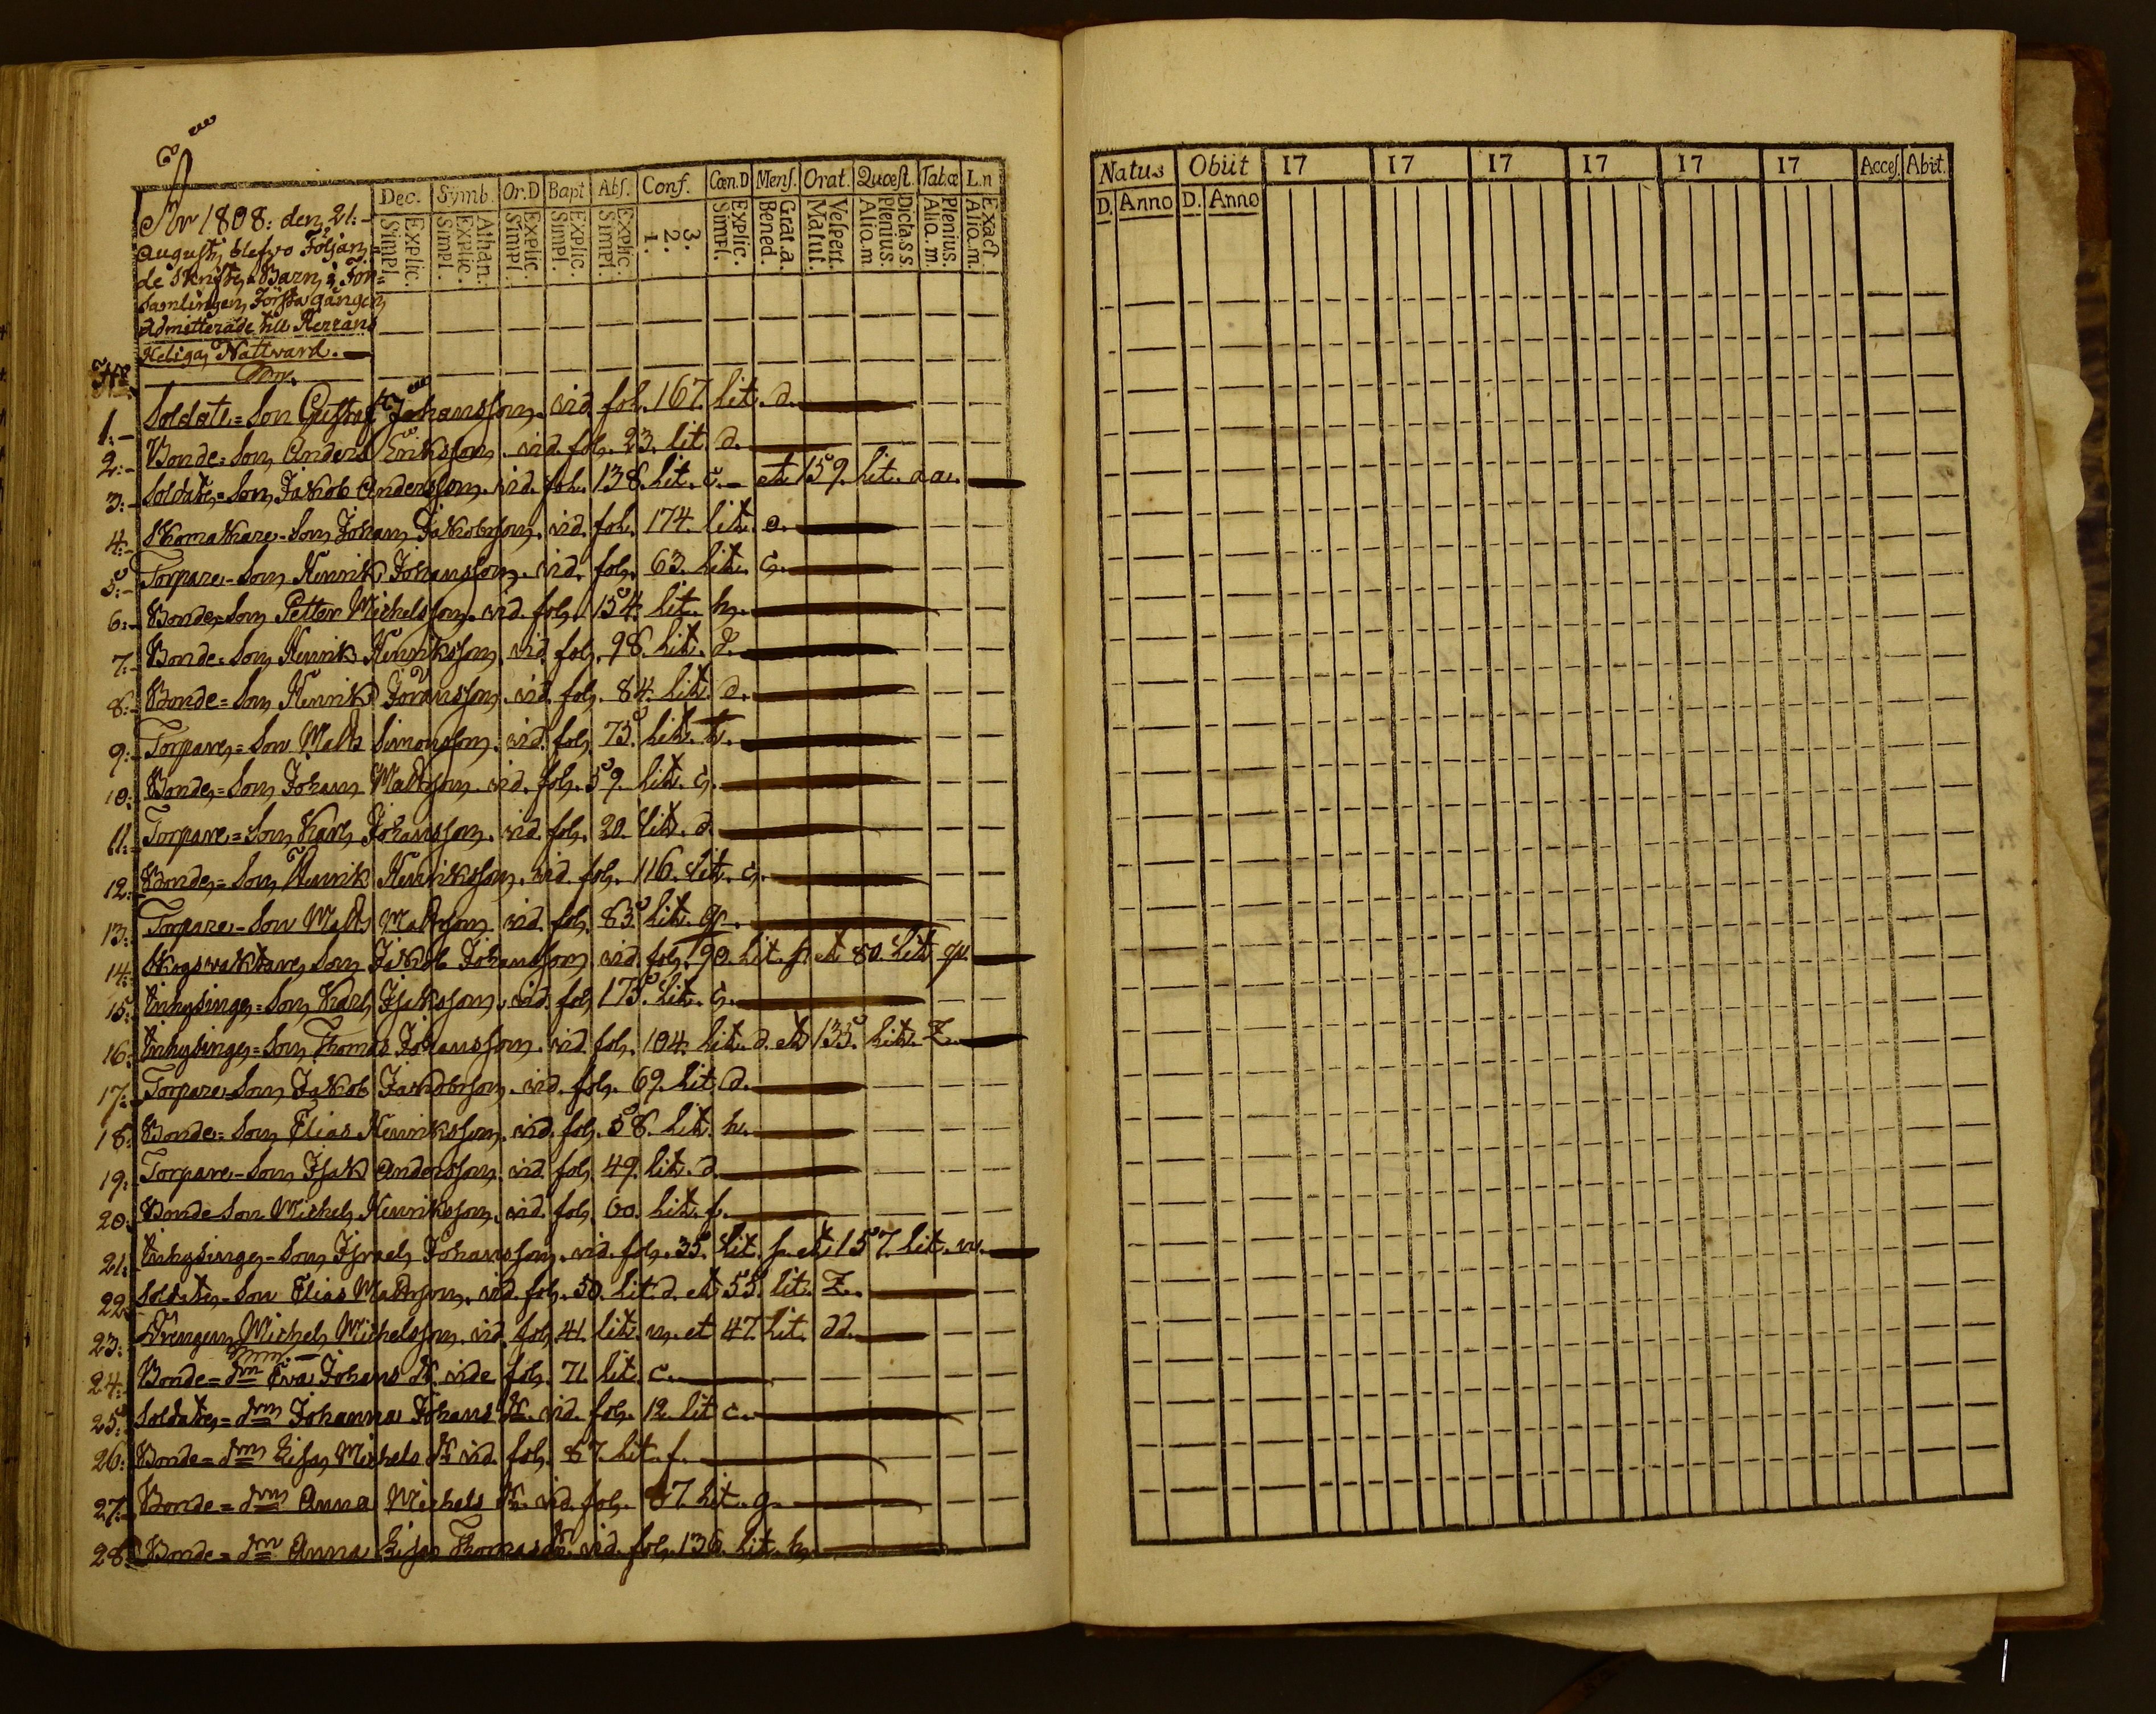 Dec. Sÿmb. Or.D Bapt Abs. Conf. Cœn.D Mens. Orat. Quæst. Tab.æ L.n
Simpl. Explic. Simpl. Explic. Athan. Simpl. Explic. Simpl. Explic. Simpl. Explic. 1. 2. 3. Simpl. Explic. Bened. Grat.a. Matut. Vespert. Alia.m Plenius. Dicta.s s. Alia.m. Plenius. Alia.m. Exact.
År 1808: den 21:
Augusti blefvo Följan=
de Skrifte=Barn i För=
samlingen Första gången
Admitterade till Herrans
Heliga Nattward.
No
1: Soldate=Son Gustaf Johansson. vid fol. 167. lit. d.
2: Bonde=Son Anders Eriksson. vid. fol. 23. lit. d.
3: Soldate=Son Jakob Andersson. vid. fol. 138. lit. c. et 159. lit. aa.
4: Skomakare=Son Johan Jakobsson. vid. fol. 174. lit. e.
5: Torpare=Son Henrik Johansson. vid. fol. 63. lit. c.
6: Bonde=Son Petter Michelsson. vid. fol. 154. lit. h.
7: Bonde=Son Henrik Henriksson. vid. fol. 98. lit. d.
8: Bonde=Son Henrik Göransson. vid. fol. 84. lit. d.
9: Torpare=Son Matts Simonsson. vid. fol. 75. lit. k.
10: Bonde=Son Johan Mattsson. vid. fol. 59. lit. c.
11: Torpare=Son Karl Johansson. vid. fol. 20. lit. d.
12: Bonde=Son Henrik Henriksson. vid. fol. 116. lit. c.
13: Torpare=Son Matts Mattsson vid. fol. 83. lit. q.
14: Skogswaktare Son Jakob Johansson. vid. fol. 90. lit. p. et 80. lit. q.
15: Inhysinge=Son Karl Isaksson. vid. fol. 175. lit. c.
16: Inhysinge=Son Thomas Johansson. vid. fol. 104. lit. d. et 135. lit. Z.
17: Torpare=Son Jakob Jakobsson. vid. fol. 69. lit. d.
18: Bonde=Son Elias Henriksson. vid. fol. 58. lit. h.
19: Torpare=Son Isak Andersson. vid. fol. 49. lit. d.
20: Bonde Son Michel Henriksson. vid. fol. 60. lit. f.
21: Inhysinge=Son Israel Johansson. vid. fol. 35. lit. p. et 157. lit. w.
22: Soldate=Son Elias Mattsson. vid. fol. 50. lit. d. et 55. lit. Z.
23: Drengen Michel Michelsson. vid. fol. 41. lit. n. et 47. lit. dd.
24: Bonde=drn Eva Johans dr. vide fol. 71. lit. c.
25: Soldate=drn Johanna Johans dr. vid. fol. 12. lit. c.
26: Bonde=drn Lisa Michels dr. vid. fol. 87. lit. f.
27: Bonde=drn Anna Michels dr. vid. fol. 87. lit. g.
28: Bonde=drn Anna Lisa Thomas dr. vid. fol. 136. lit. h.
Natus Obiit 17 17 17 17 17 17 Acces. Abiit.
D. Anno D. Anno